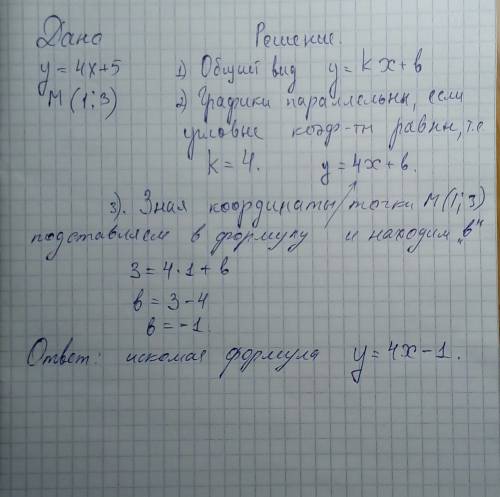 Дано
Решение.
y = 4x+5
1) Общий вид y = kx + b
M (1; 3)
2) Графики параллельны, если
угловые коэф-ты равны, т.е
k = 4. y = 4x + b.
3). Зная координаты точки M(1; 3)
подставляем в формулу и находим „b"
3 = 4 · 1 + b
b = 3 - 4
b = -1.
Ответ: искомая формула y = 4x - 1.